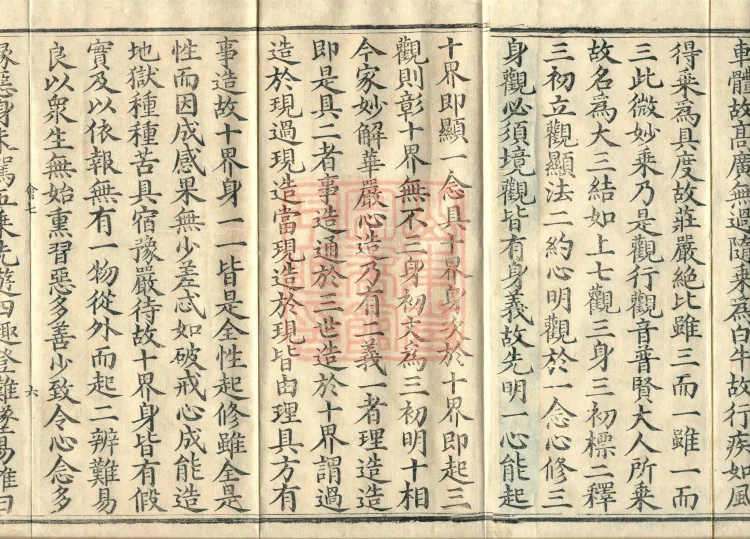 車體故高廣無過隨乘為白牛故行疾如風
得乘為具度故莊嚴絕比雖三而一雖一而
三此微妙乘乃是觀行觀音普賢大人所乘
故名為大三結如上七觀三身三初標二釋
三初立觀顯法二約心明觀於一念心修三
身觀必須境觀皆有身義故先明一心能起
十界即顯一念具十界身次於十界即起三
觀則彰十界無不三身初文為三初明十相
今家妙解華嚴心造乃有二義一者理造造
即是具二者事造通於三世造於十界謂過
造於現過現造當現造於現皆由理具方有
事造故十界身一一皆是全性起修雖全是
性而因成感果無少差忒如破戒心成能造
地獄種種苦具宿豫嚴待故十界身皆有假
實及以依報無有一物從外而起二辨難易
良以眾生無始熏習惡多善少致令心念多
緣惡身未駕五乘先遊四趣登難墜易雖曰
會七
六